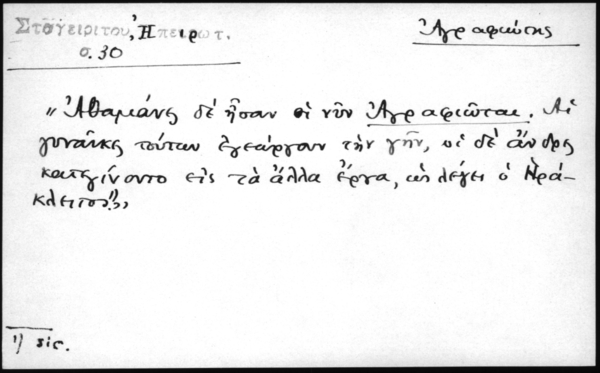 Σταγειρίτου, Ἠπειρωτ.
σ. 30
Ἀγραφιώτης
"Ἀθαμᾶνες δέ ἦσαν οἱ νῦν Ἀγραφιῶται. Αἱ
γυναῖκες τούτων ἐγεώργουν τὴν γῆν, οἱ δὲ ἄνδρες
κατεγίνοντο εἰς τὰ ἄλλα ἔργα, ὡς λέγει ὁ Ἡρά-
κλειτος¹⁾"
1) sic.